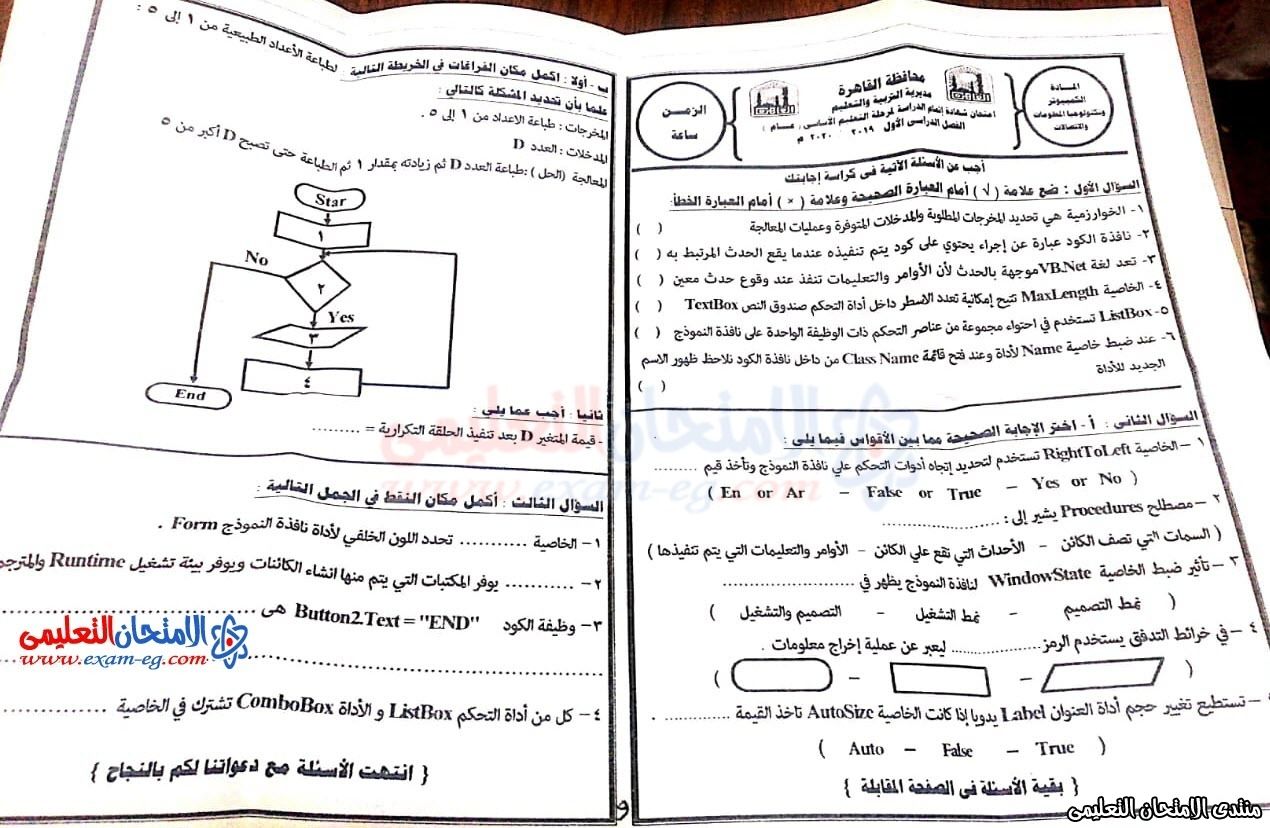 المـــادة
الكمبيوتر
وتكنولوجيا المعلومات
والاتصالات
محافظة القاهرة
مديرية التربية والتعليم
امتحان شهادة إتمام الدراسة لمرحلة التعليم الأساسى ; عــام :
الفصل الدراسى الأول ٢٠١٩ - ٢٠٢٠ م
الزمــن
ساعة
أجب عن الأسئلة الآتية فى كراسة إجابتك
السؤال الأول : ضع علامة ( √ ) أمام العبارة الصحيحة وعلامة ( × ) أمام العبارة الخطأ:
١- الخوارزمية هي تحديد المخرجات المطلوبة والمدخلات المتوفرة وعمليات المعالجة ( )
٢- نافذة الكود عبارة عن إجراء يحتوي على كود يتم تنفيذه عندما يقع الحدث المرتبط به ( )
٣- تعد لغة VB.Net موجهة بالحدث لأن الأوامر والتعليمات تنفذ عند وقوع حدث معين ( )
٤- الخاصية MaxLength تتيح إمكانية تعدد الاسطر داخل أداة التحكم صندوق النص TextBox ( )
٥- ListBox تستخدم في احتواء مجموعة من عناصر التحكم ذات الوظيفة الواحدة على نافذة النموذج ( )
٦- عند ضبط خاصية Name لأداة وعند فتح قائمة Class Name من داخل نافذة الكود نلاحظ ظهور الاسم
الجديد للأداة ( )
السؤال الثانى : أ - اختر الإجابة الصحيحة مما بين الأقواس فيما يلى :
١ – الخاصية RightToLeft تستخدم لتحديد إتجاه أدوات التحكم علي نافذة النموذج وتأخذ قيم ..........
( En or Ar – False or True – Yes or No )
٢ – مصطلح Procedures يشير إلى : ....................
( السمات التي تصف الكائن - الأحداث التي تقع علي الكائن - الأوامر والتعليمات التي يتم تنفيذها )
٣ – تأثير ضبط الخاصية WindowState لنافذة النموذج يظهر في ....................
( نمط التصميم – نمط التشغيل – التصميم والتشغيل )
٤ – في خرائط التدفق يستخدم الرمز.................... ليعبر عن عملية إخراج معلومات .
( – – )
– تستطيع تغيير حجم أداة العنوان Label يدويا إذا كانت الخاصية AutoSize تاخذ القيمة ............ .
( Auto – False – True )
{ بقية الأسئلة فى الصفحة المقابلة }
ب – أولا : اكمل مكان الفراغات في الخريطة التالية لطباعة الأعداد الطبيعية من ١ إلى ٥ :
علما بأن تحديد المشكلة كالتالي :
المخرجات : طباعة الاعداد من ١ إلى ٥ .
المدخلات : العدد D
المعالجة (الحل ) :طباعة العدد D ثم زيادته بمقدار ١ ثم الطباعة حتى تصبح D أكبر من ٥
Star
١
No
٢
Yes
٣
٤
End
ثانيا : أجب عما يلى :
- قيمة المتغير D بعد تنفيذ الحلقة التكرارية = ..........
السؤال الثالث : أكمل مكان النقط في الجمل التالية :
١– الخاصية ............ تحدد اللون الخلفي لأداة نافذة النموذج Form .
٢– ............ يوفر المكتبات التي يتم منها انشاء الكائنات ويوفر بيئة تشغيل Runtime والمترجم
٣– وظيفة الكود Button2.Text = "END" هى ....................
....................
٤– كل من أداة التحكم ListBox و الأداة ComboBox تشترك في الخاصية ............
{ انتهت الأسئلة مع دعواتنا لكم بالنجاح }
الامتحان التعليمى
www.exam-eg.com
الامتحان التعليمى
www.exam-eg.com
منتدى الامتحان التعليمى